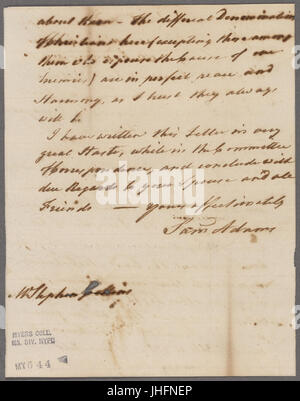 about them – The different Denominations
of Christians here (excepting those among
them who espouse the cause of our
Enemies) are in perfect peace and
Harmony, as I trust they always
will be
I have written this Letter in very
great Haste, while in the Committee
of Correspondence, and conclude with
due Regards to your Spouse and all
Friends — yours affectionately
Sam Adams
Mr Stephen Collins
MYERS COLL.
MS. DIV. NYPL
MY 6 44
a
alamy
Image ID: JHFNEP
www.alamy.com